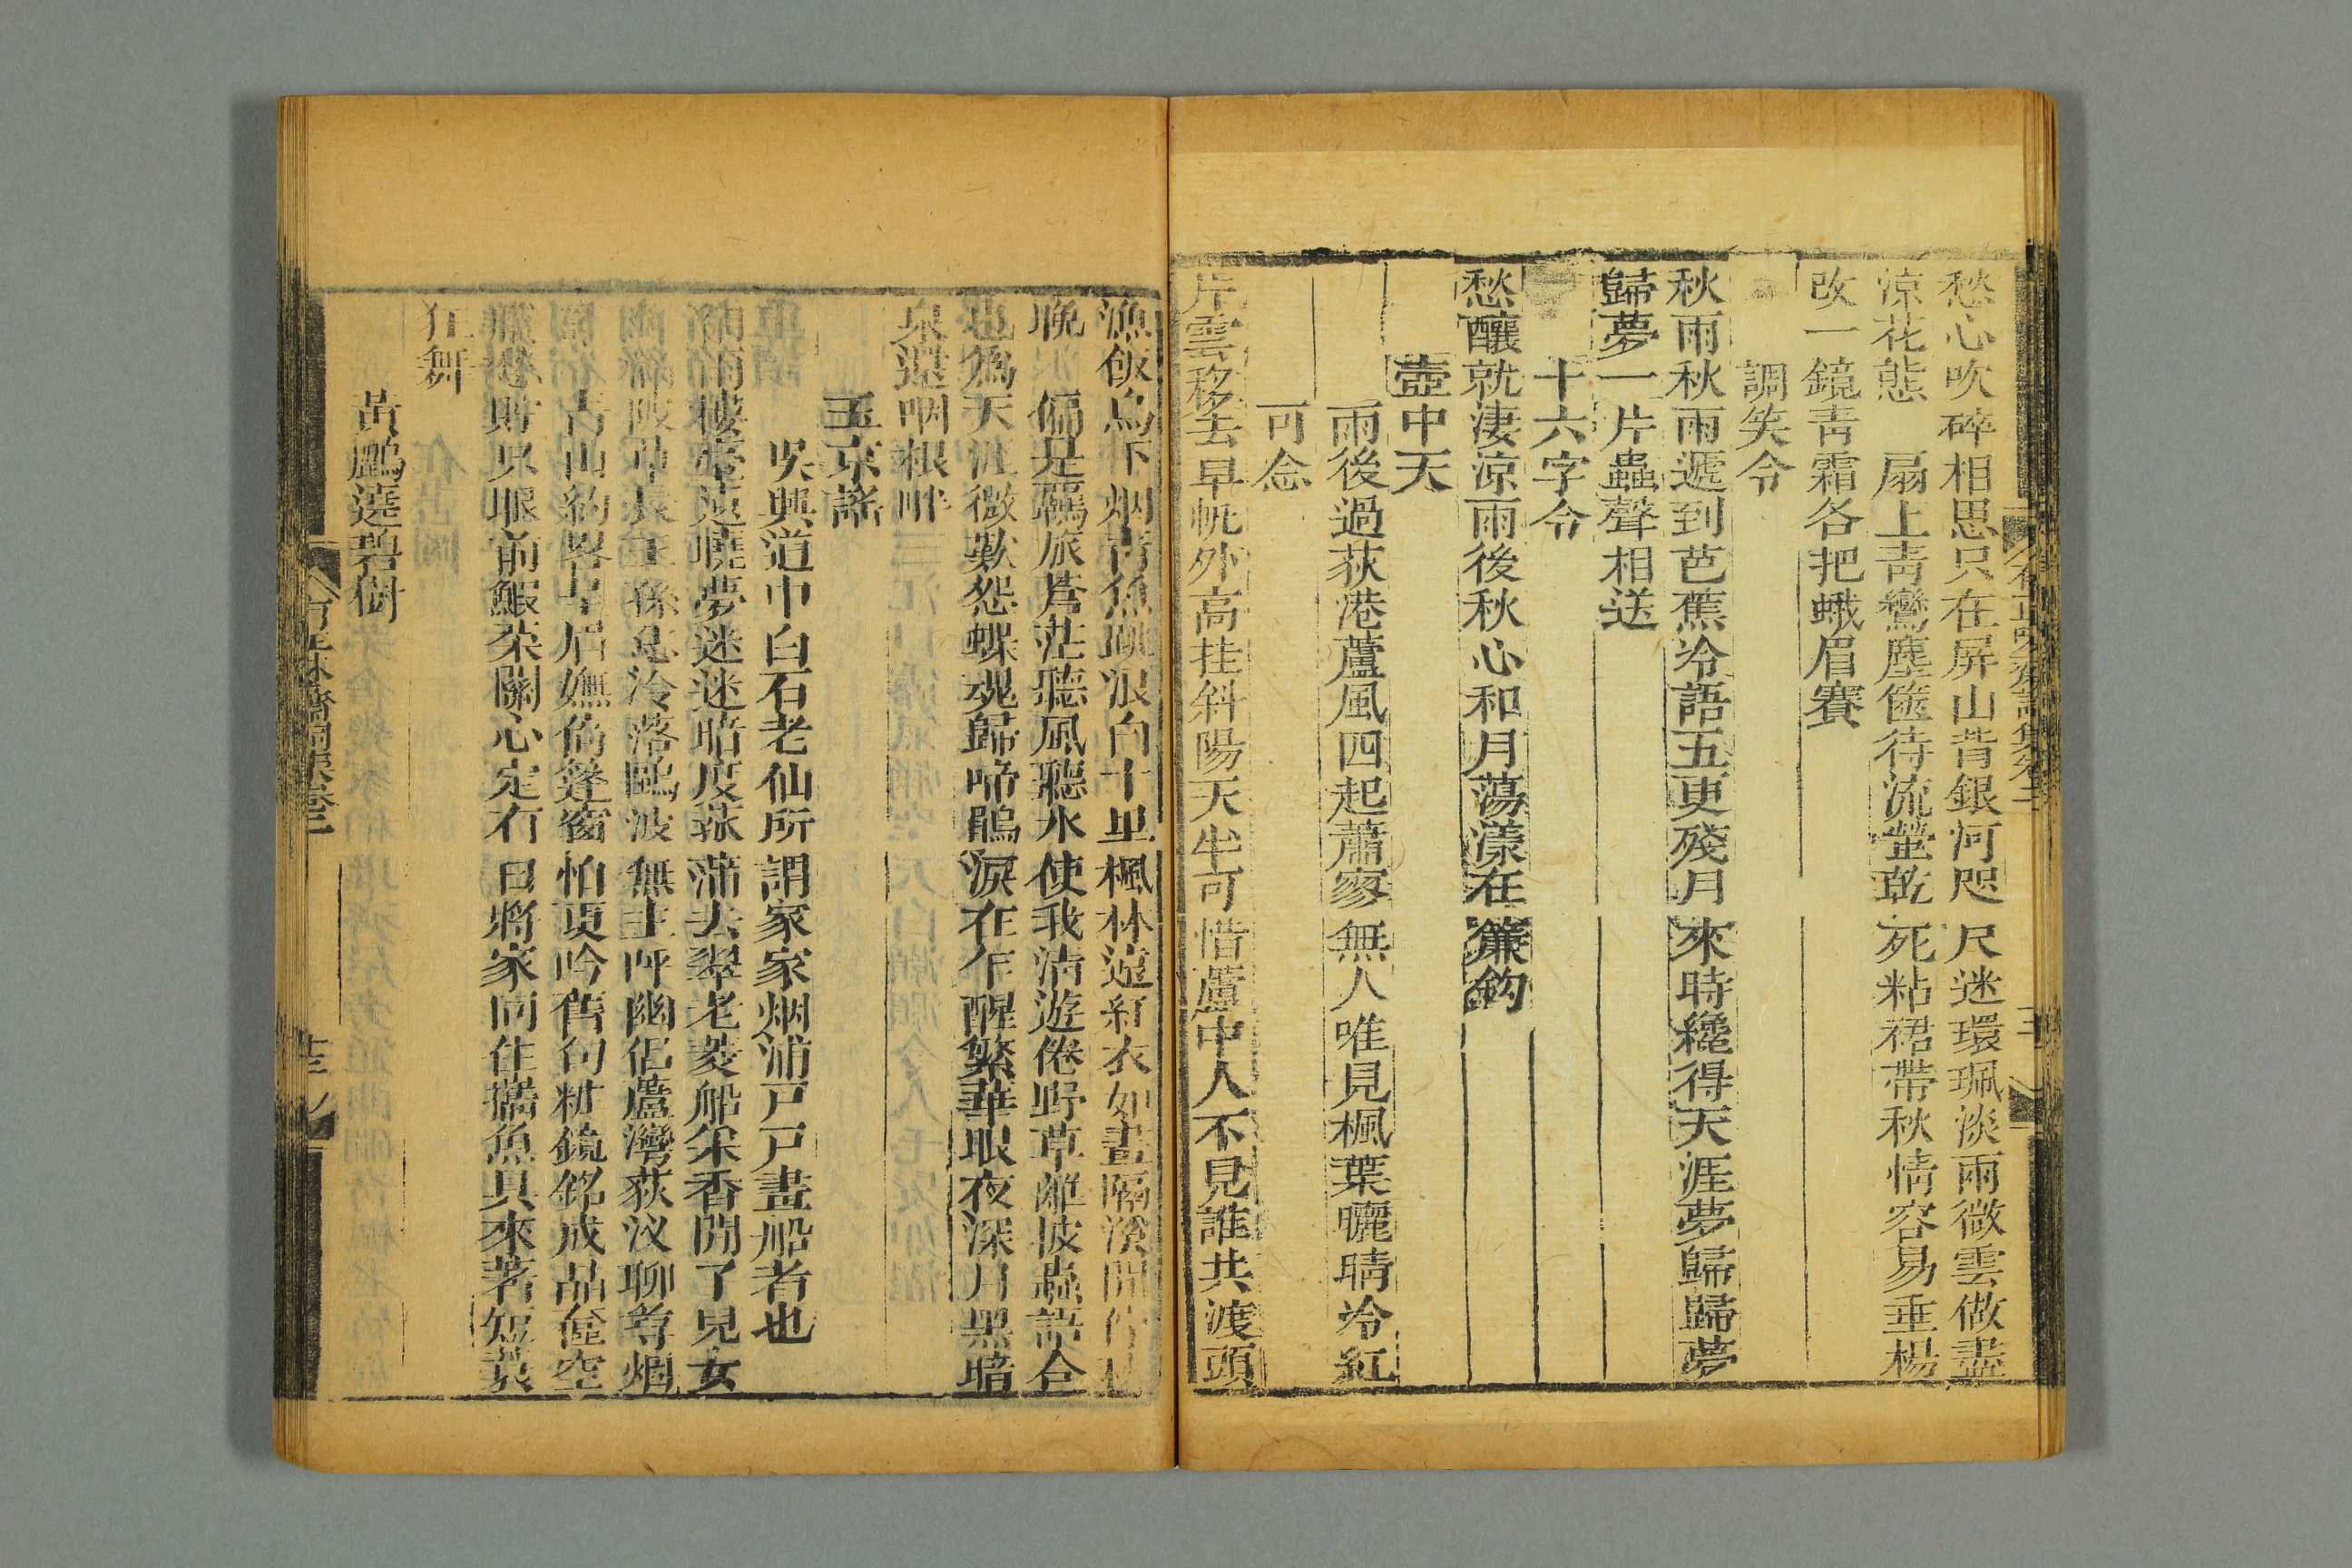 愁心吹碎相思只在屏山背銀河咫尺迷環珮淡雨微雲做盡
涼花態　扇上青鸞塵篋待流螢乾死粘裙帶秋情容易垂楊
改一鏡青霜各把蛾眉賽
調笑令
秋雨秋雨遞到芭蕉冷語五更殘月來時纔得天涯夢歸歸夢
歸夢一片蟲聲相送
十六字令
愁釀就淒涼雨後秋心和月蕩漾在簾鈎
壺中天
雨後過荻港蘆風四起蕭寥無人唯見楓葉曬晴冷紅
可念
片雲移去早帆外高挂斜陽天半可惜蘆中人不見誰共渡頭
漁飯烏下烟青魚跳浪白十里楓林遠紅衣如畫隔溪閒
晚　偏是羈旅蒼茫聽風聽水使我清遊倦野草離披蟲語合
也爲天涯微歎怨蝶魂歸啼鵑淚在乍醒繁華眼夜深月黑暗
泉還咽根畔
玉京謠
吳興道中白石老仙所謂家家烟浦戸戸畫船者也
雨樓臺遠曉夢迷迷暗度菰蒲去翠老菱船朱香閒了兒女
草長王孫冷落鷗波無主呼幽侶蘆灣荻汊聊尊烟
古山約畧眉嫵倚篷窗怕更吟舊句粧鏡銘成品奩空
愁貯只眼前鰕菜關心定有日將家同住攜魚具來著短蓑
狂舞
黃鸝遶碧樹